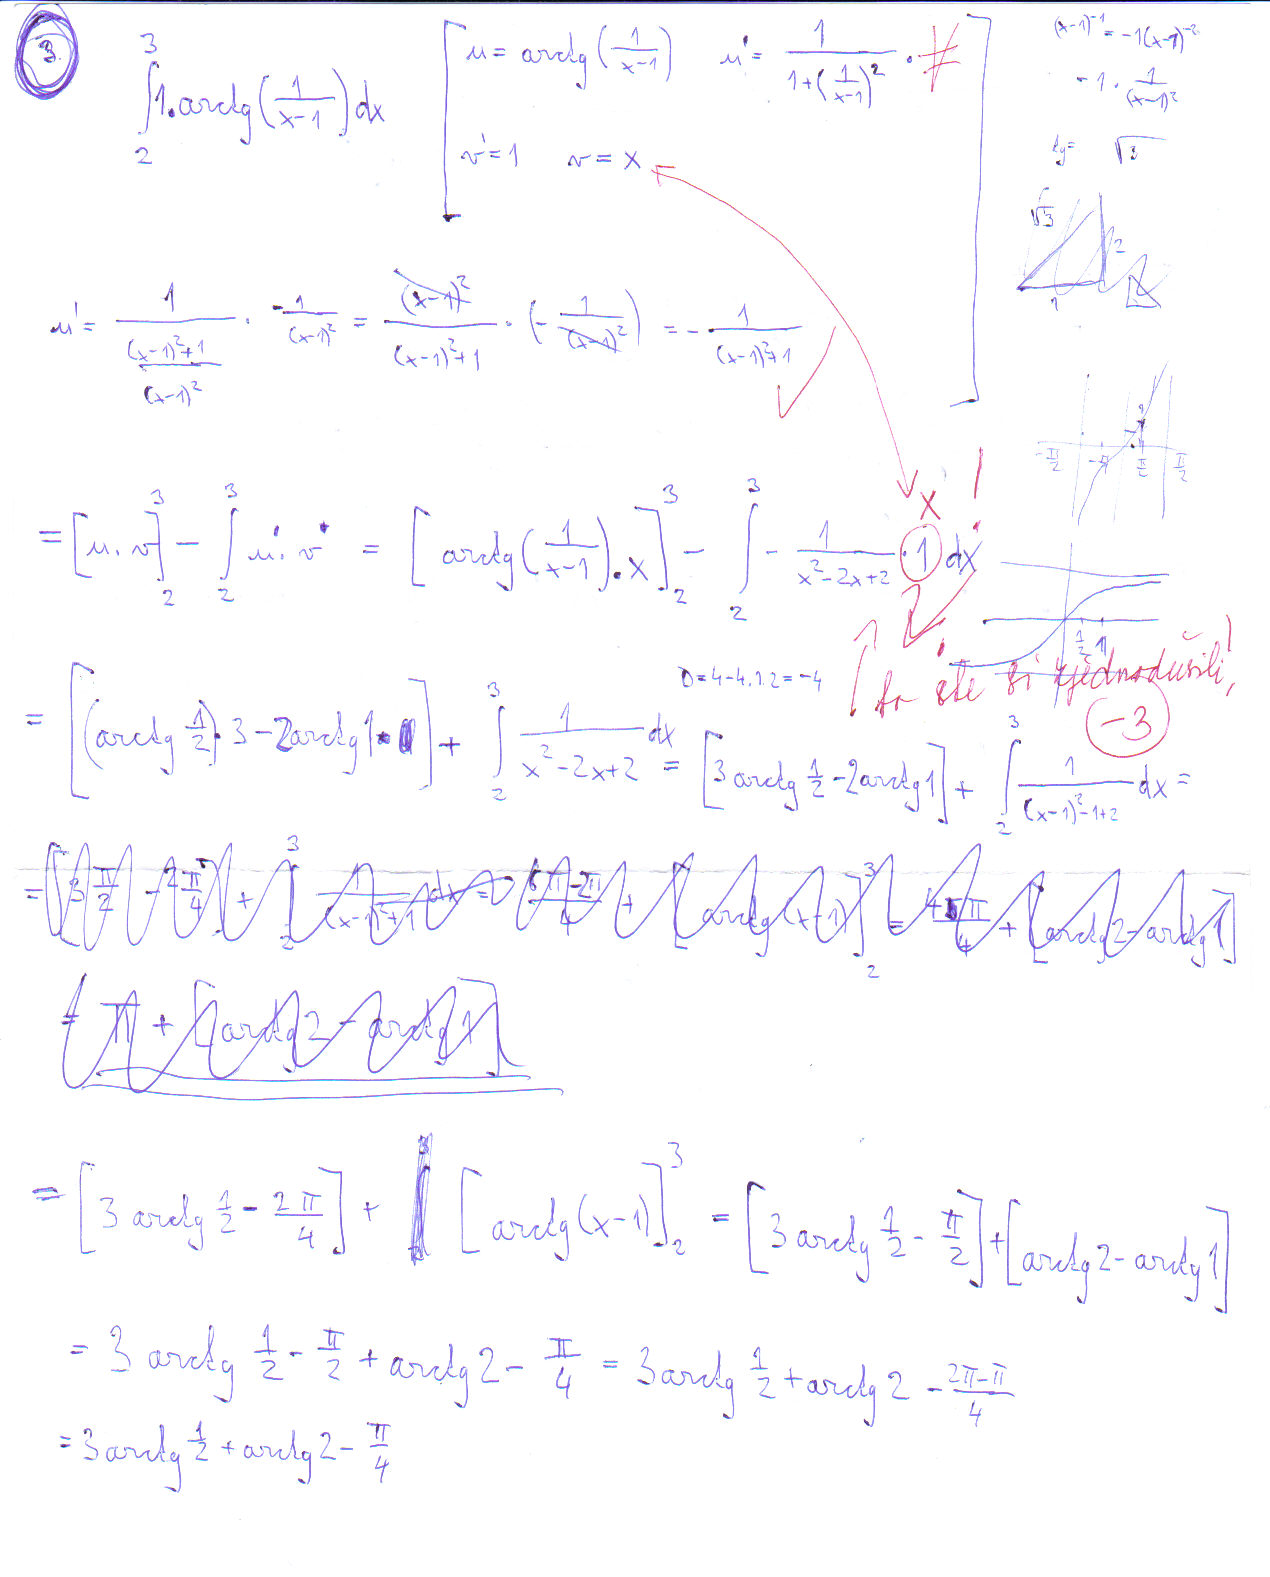 3.
∫₂³ 1·arctg(1/(x-1)) dx [ u = arctg(1/(x-1)) u' = 1/(1+(1/(x-1))²) · #
v' = 1 v = x ]
(x-1)⁻¹ = -1(x-1)⁻²
-1 · 1/(x-1)²
tg = √3
√3 2 1
u' = 1/(((x-1)²+1)/(x-1)²) · -1/(x-1)² = (x-1)²/((x-1)²+1) · (-1/(x-1)²) = -1/((x-1)²+1) ✓
-π/2 π/2 π/2
= [u·v]₂³ - ∫₂³ u'·v = [arctg(1/(x-1))·x]₂³ - ∫₂³ -1/(x²-2x+2) · 1 dx
x !
to ste si zjednodušili!
-3
D = 4-4.1.2 = -4
= [(arctg 1/2)·3 - 2arctg1] + ∫₂³ 1/(x²-2x+2) dx = [3arctg 1/2 - 2arctg1] + ∫₂³ 1/((x-1)²-1+2) dx =
= [3 π/2 - 2 π/4] + ∫₂³ 1/((x-1)²+1) dx = (6π-2π)/4 + [arctg(x-1)]₂³ = 4π/4 + [arctg2 - arctg1]
= π + [arctg2 - arctg1]
= [3arctg 1/2 - 2π/4] + [arctg(x-1)]₂³ = [3arctg 1/2 - π/2] + [arctg2 - arctg1]
= 3arctg 1/2 - π/2 + arctg2 - π/4 = 3arctg 1/2 + arctg2 - (2π-π)/4
= 3arctg 1/2 + arctg2 - π/4